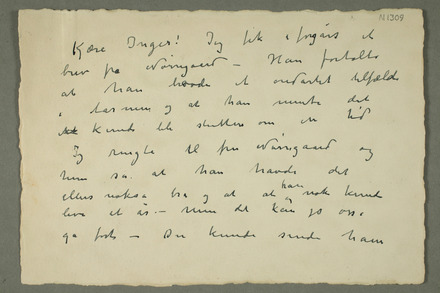 N1309
Kære Inger! Jeg fik i forgårs et
brev fra Nörregaard – Han fortalte
at han havde et ondartet tilfælde
i tarmen og at han mente det
kunde bli slutten om en tid
Jeg ringte til fru Nörregaard og
hun sa at han havde det
ellers nokså bra og at han nok kunde
leve et år – men det kan jo også
gå fort – Du kunde sende ham